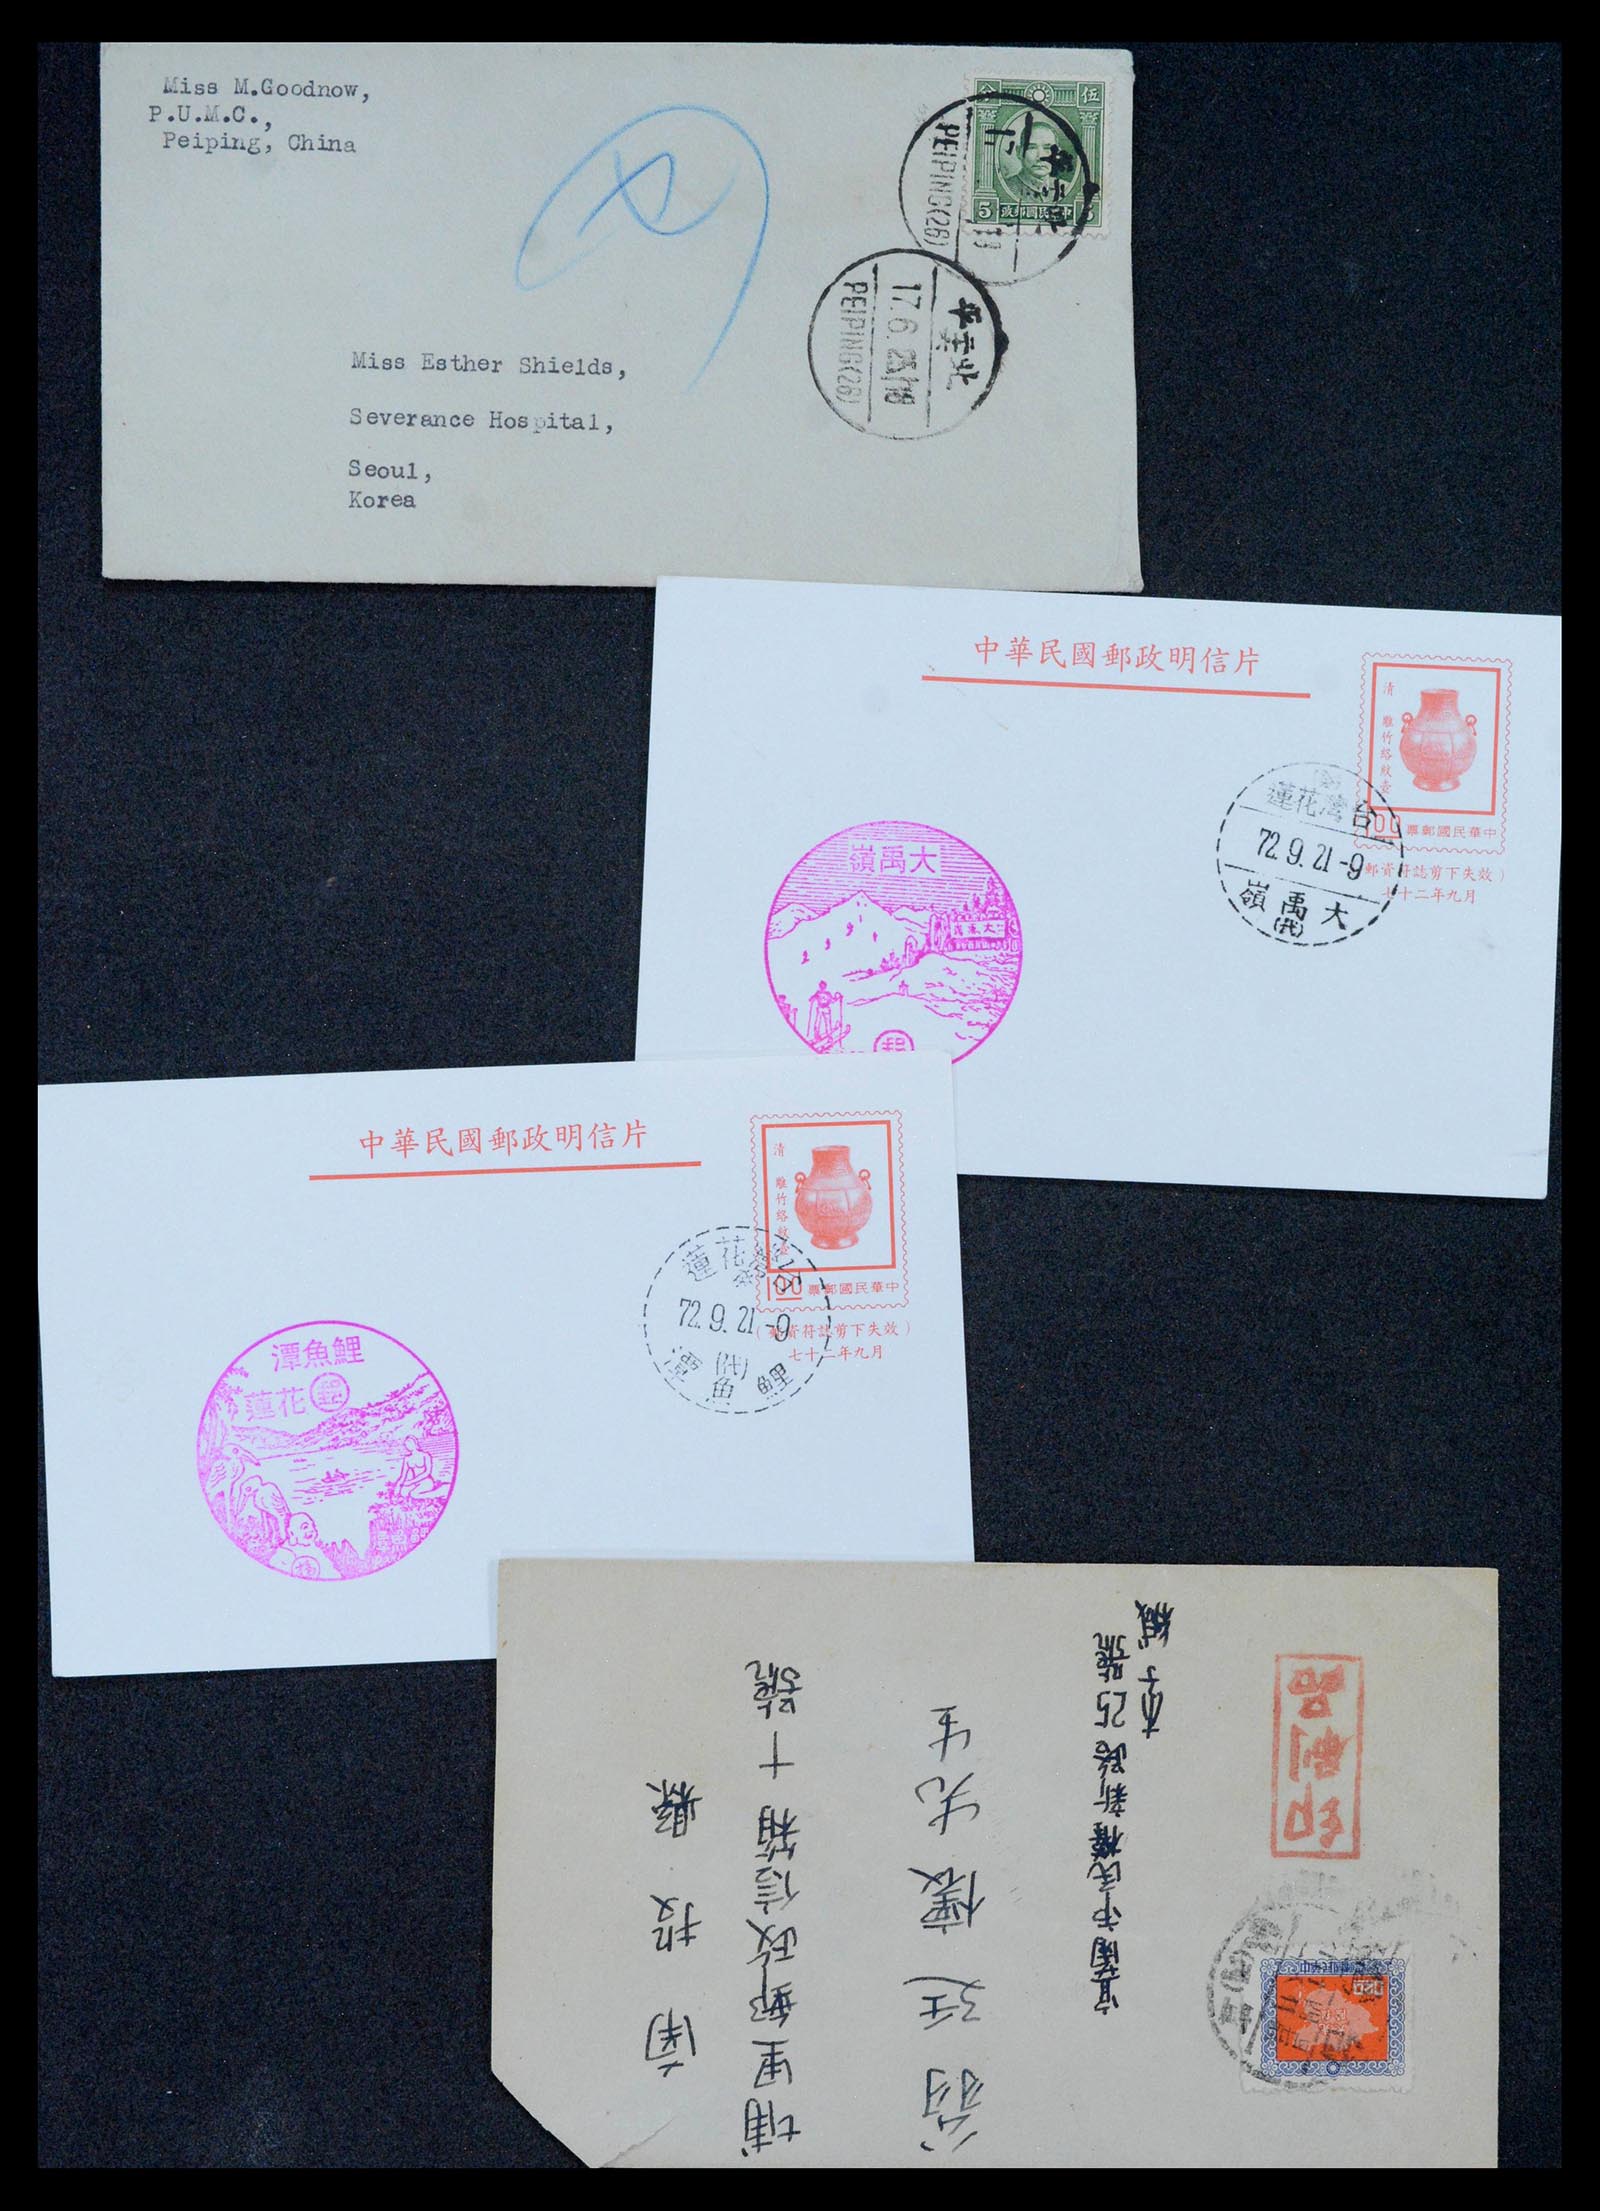 Miss M.Goodnow,
P.U.M.C.,
Peiping, China
分 伍
5 政郵國民華中
PEIPING(26)
平 北
17.6.25/18
PEIPING(26)
Miss Esther Shields,
Severance Hospital,
Seoul,
Korea
中華民國郵政明信片
清 雕竹絡紋壺
票郵國民華中
郵資符誌剪下失效）
七十二年九月
蓮花灣台
72.9.21-9
嶺禹大
(代)
嶺禹大
郵
中華民國郵政明信片
清 雕竹絡紋壺
100 票郵國民華中
（郵資符誌剪下失效）
七十二年九月
蓮花
72.9.21-9
(代)
潭魚鯉
潭魚鯉
蓮花 郵
南投縣
埔里郵政信箱十號
先生
宜蘭市民權新路25號
李 緘
印刷品